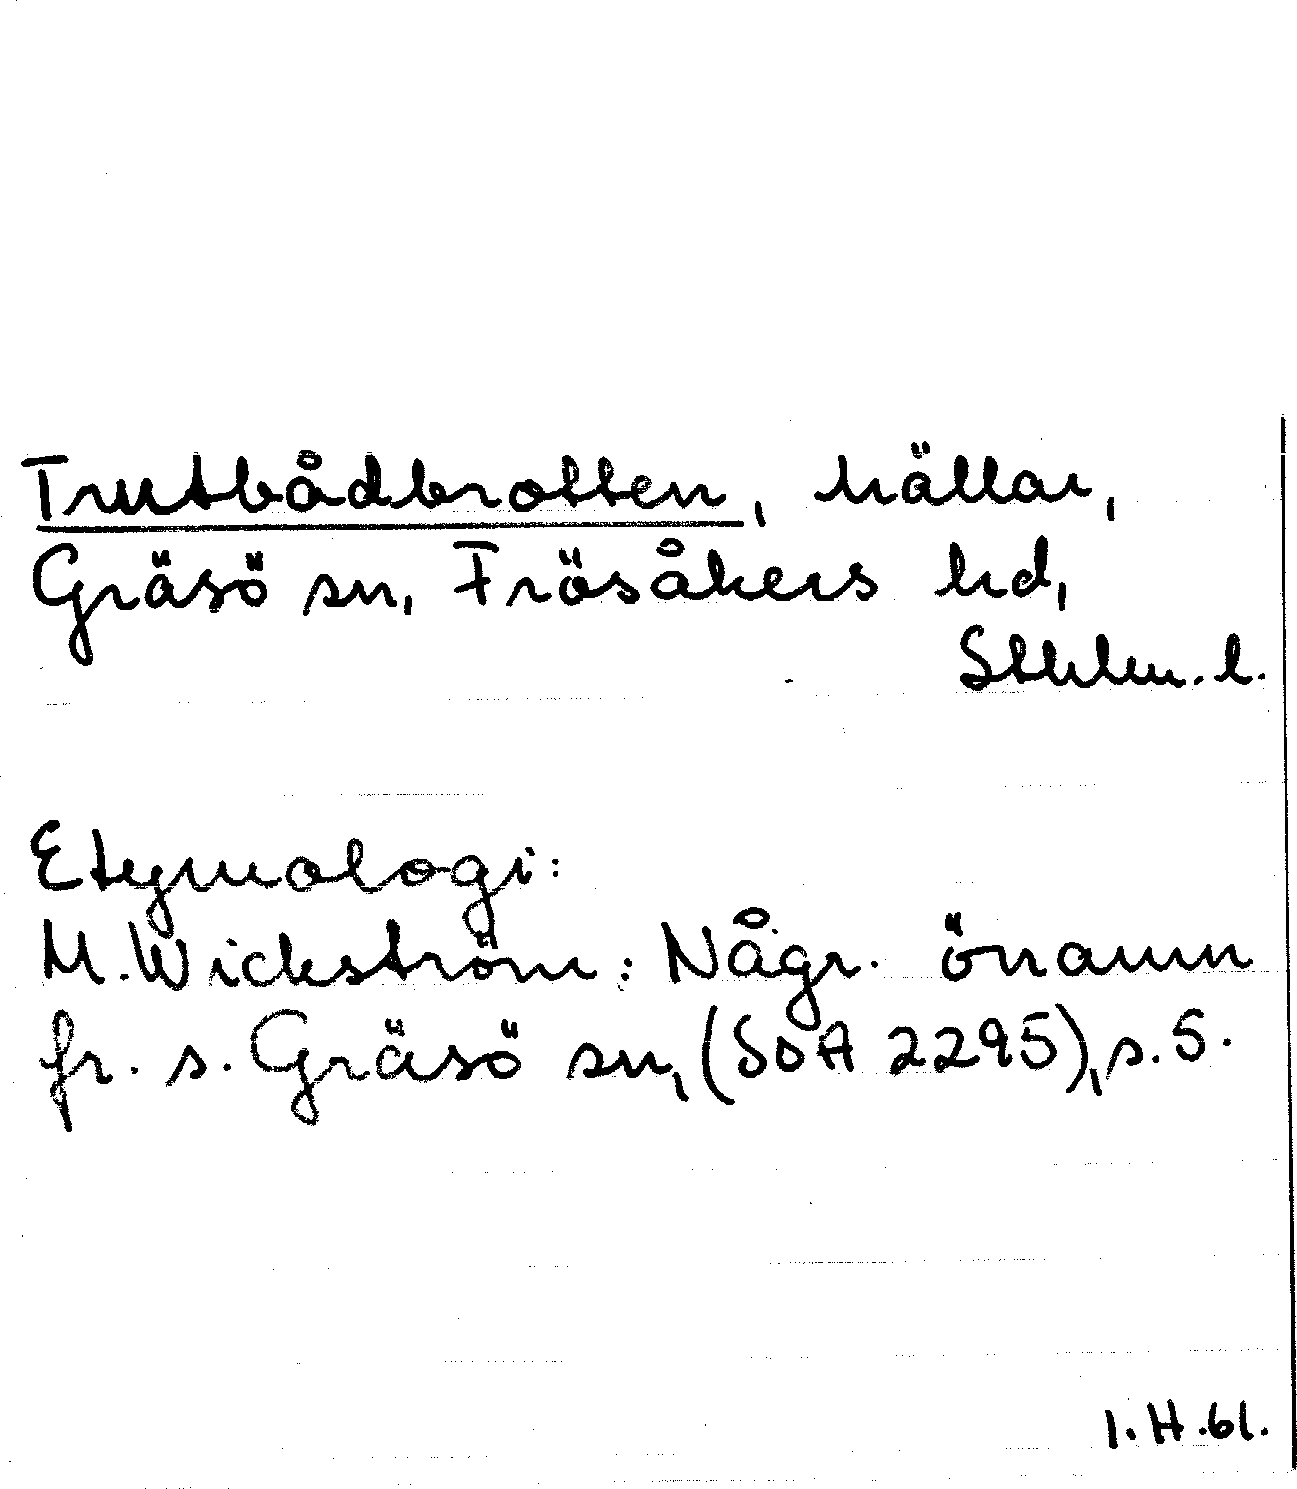 Trutbådbrotten, hällar,
Gräsö sn, Frösåkers hd,
Sthlm. l.
Etymologi:
M. Wickström: Någr. önamn
fr. s. Gräsö sn, (SOA 2295), s. 5.
I. H. 61.